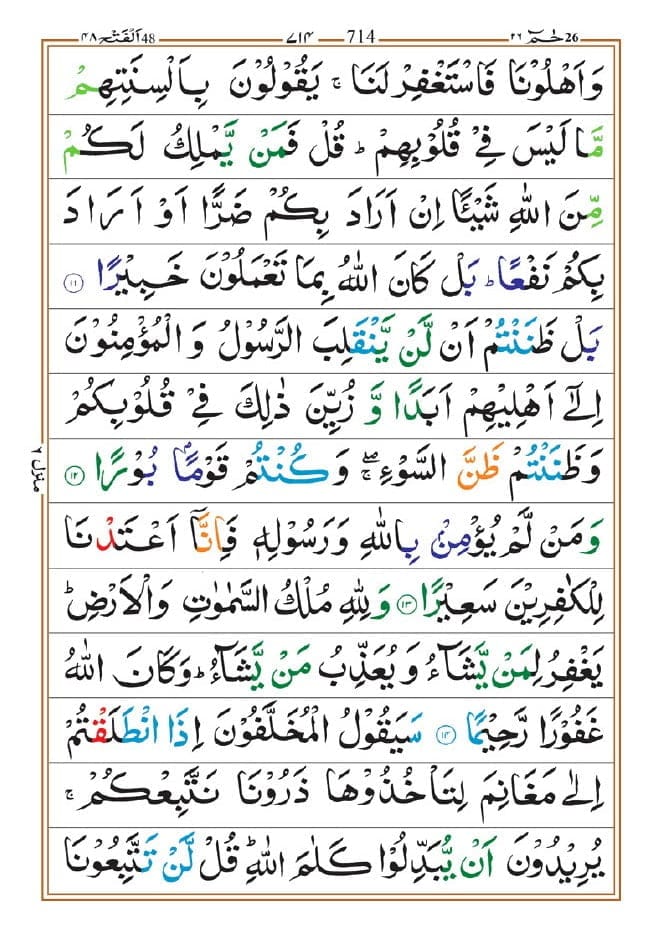 26 حٰمٓ ٢٦
714 ٧١٤
48 اَلْفَتْح ٤٨
وَاَهْلُوْنَا فَاسْتَغْفِرْ لَنَا ۚ يَقُوْلُوْنَ بِاَلْسِنَتِهِمْ
مَّا لَيْسَ فِيْ قُلُوْبِهِمْ ؕ قُلْ فَمَنْ يَّمْلِكُ لَكُمْ
مِّنَ اللّٰهِ شَيْـًٔا اِنْ اَرَادَ بِكُمْ ضَرًّا اَوْ اَرَادَ
بِكُمْ نَفْعًا ؕ بَلْ كَانَ اللّٰهُ بِمَا تَعْمَلُوْنَ خَبِيْرًا ۝١١
بَلْ ظَنَنْتُمْ اَنْ لَّنْ يَّنْقَلِبَ الرَّسُوْلُ وَالْمُؤْمِنُوْنَ
اِلٰٓى اَهْلِيْهِمْ اَبَدًا وَّ زُيِّنَ ذٰلِكَ فِيْ قُلُوْبِكُمْ
وَظَنَنْتُمْ ظَنَّ السَّوْءِ ۖۚ وَكُنْتُمْ قَوْمًۢا بُوْرًا ۝١٢
وَمَنْ لَّمْ يُؤْمِنْۢ بِاللّٰهِ وَرَسُوْلِهٖ فَاِنَّاۤ اَعْتَدْنَا
لِلْكٰفِرِيْنَ سَعِيْرًا ۝١٣ وَلِلّٰهِ مُلْكُ السَّمٰوٰتِ وَالْاَرْضِ ؕ
يَغْفِرُ لِمَنْ يَّشَآءُ وَيُعَذِّبُ مَنْ يَّشَآءُ ؕ وَكَانَ اللّٰهُ
غَفُوْرًا رَّحِيْمًا ۝١٤ سَيَقُوْلُ الْمُخَلَّفُوْنَ اِذَا انْطَلَقْتُمْ
اِلٰى مَغَانِمَ لِتَاْخُذُوْهَا ذَرُوْنَا نَتَّبِعْكُمْ ۚ
يُرِيْدُوْنَ اَنْ يُّبَدِّلُوْا كَلٰمَ اللّٰهِ ؕ قُلْ لَّنْ تَتَّبِعُوْنَا
منزل ٦